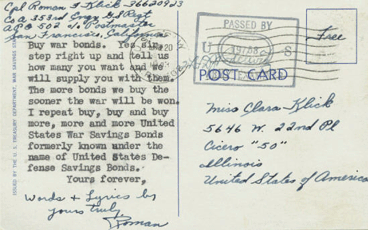 Cpl Roman F Klick
Co a 353rd
APO 502 c/o Postmaster
San Francisco, California
Buy war bonds. Yes sir
step right up and tell us
how many you want and we
will supply you with them.
The more bonds we buy the
sooner the war will be won.
I repeat buy, buy and buy
more, more and more United
States War Savings Bonds
formerly known under the
name of United States De-
fense Savings Bonds.
Yours forever,
Words & Lyrics by
yours truly,
Roman
PASSED BY
U S
Free
POST CARD
Miss Clara Klick
5646 W. 22nd Pl
Cicero "50"
Illinois
United States of America
ISSUED BY THE U. S. TREASURY DEPARTMENT, WAR SAVINGS